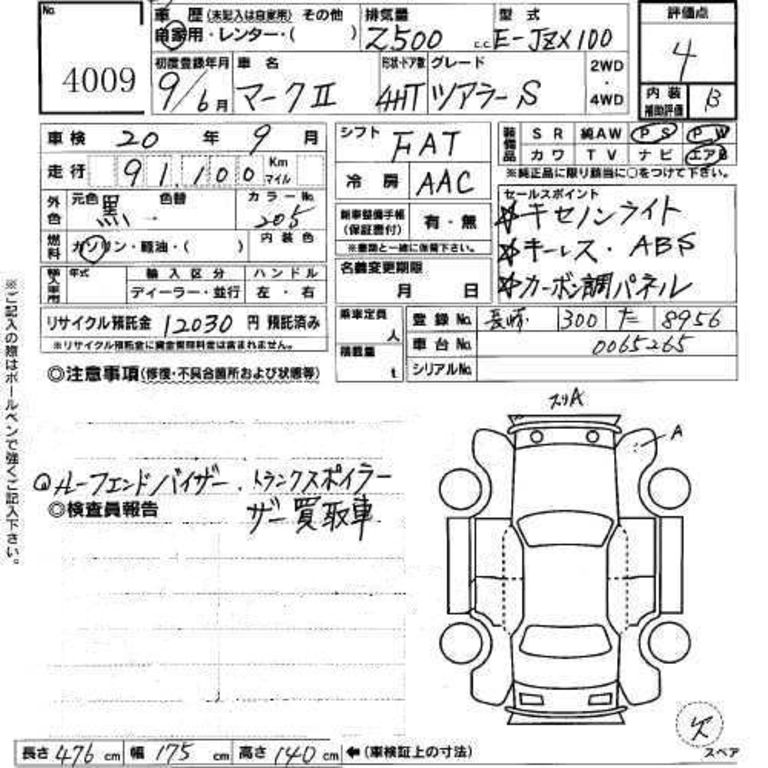 No. 4009
車 歴 (未記入は自家用) その他
自家用・レンター・( )
排気量 2500 c.c.
型 式 E-JZX100
評価点 4
内装補助評価 B
初度登録年月 9/6月
車 名 マークII
形状・ドア数 4HT
グレード ツアラーS
2WD・4WD
車 検 20 年 9 月
シフト FAT
装備品 S R 純AW P S P W
カワ T V ナビ エアB
※純正品に限り該当に○をつけて下さい。
走 行 91,100 Km マイル
冷 房 AAC
外色 元色 黒 色替 カラーNo. 205
新車整備手帳(保証書付) 有・無
※書類と一緒に保管下さい。
セールスポイント
☆キセノンライト
☆キーレス・ABS
☆カーボン調パネル
燃料 ガソリン・軽油・( ) 内装色
名義変更期限 月 日
輸入車用 年式 輸入区分 ハンドル
ディーラー・並行 左・右
リサイクル預託金 12030 円 預託済み
※リサイクル預託金に資金管理料金は含まれません。
乗車定員 人
積載量 t
登録No. 長崎 300 た 8956
車台No. 0065265
シリアルNo.
◎注意事項(修復・不具合箇所および状態等)
スリA
A
ルーフエンドバイザー、トランクスポイラー
◎検査員報告
ザー買取車
※ご記入の際はボールペンで強くご記入下さい。
欠
スペア
長さ 476 cm 幅 175 cm 高さ 140 cm ←(車検証上の寸法)